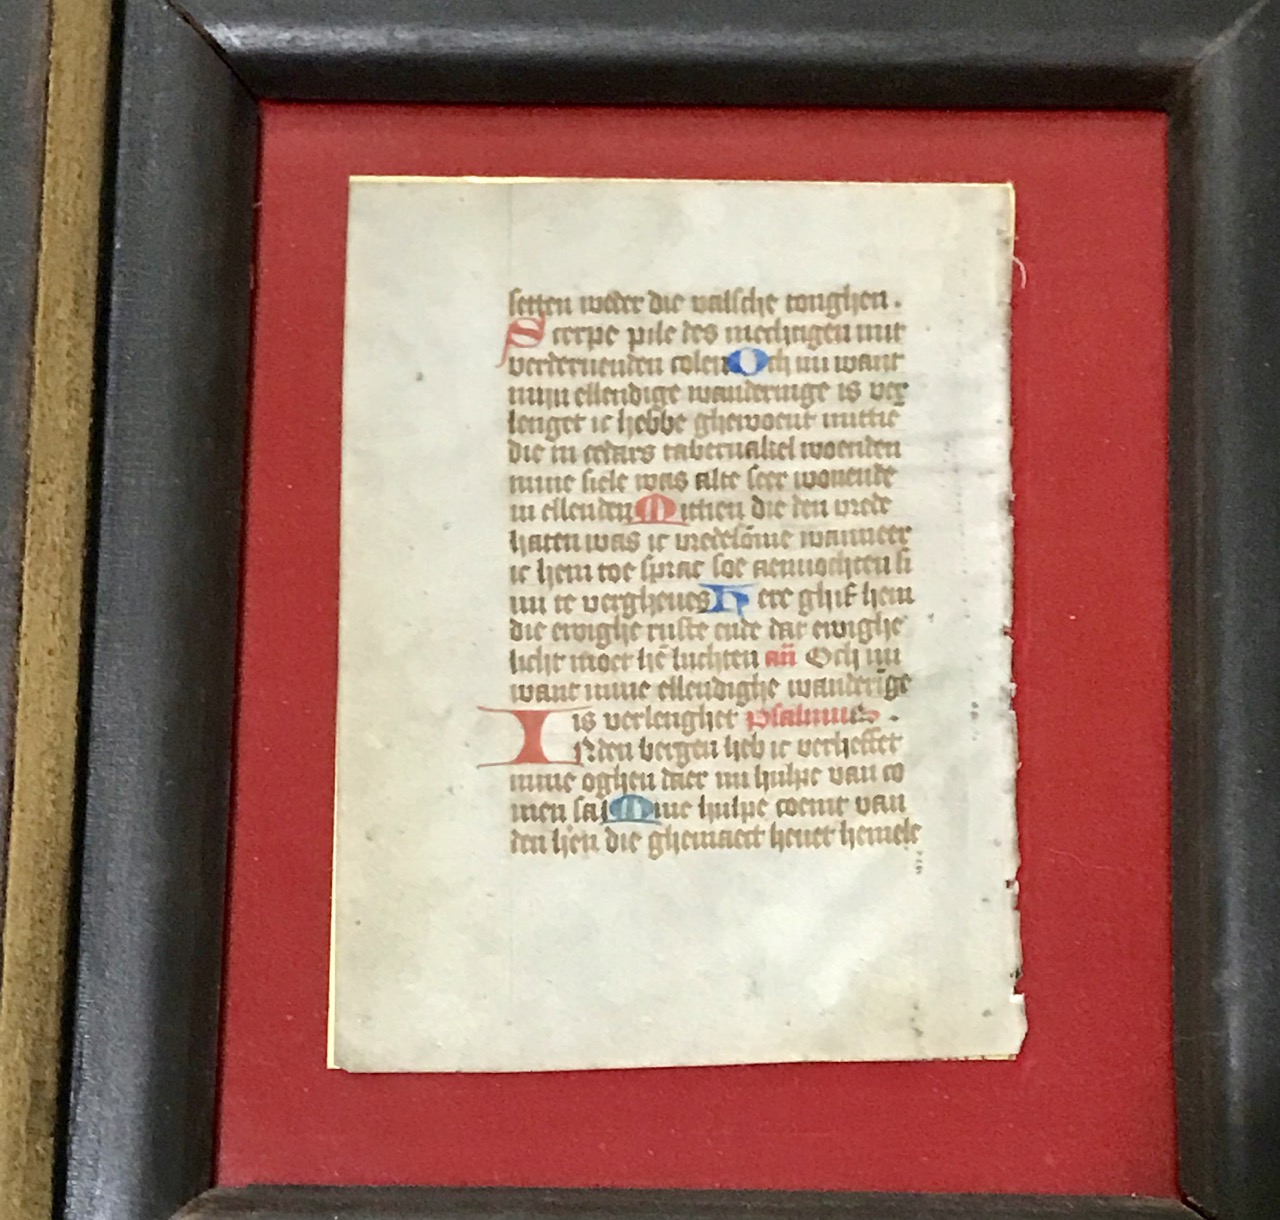 setten weder die valsche tonghen.
Scerpe pile des mechtigen mit
verderuenden colen Och mi want
mijn ellendige wanderinge is ver
lenget ic hebbe ghewoent mittie
die in cedars tabernakel woenden
mine siele was alte seer wonende
in ellenden Mittien die den vrede
haten was ic vredesōme wanneer
ic hem toe sprac soe aenuochten si
mi te vergheues Here ghif hem
die ewighe ruste ende dat ewighe
licht moet hē luchten an̄ Och mi
want mine ellendighe wanderīge
is verlenghet psalmus.
INden bergen heb ic verheffet
mine oghen daer mi hulpe van co
men sal Mine hulpe coemt van
den hēn die ghemaect heuet hemele